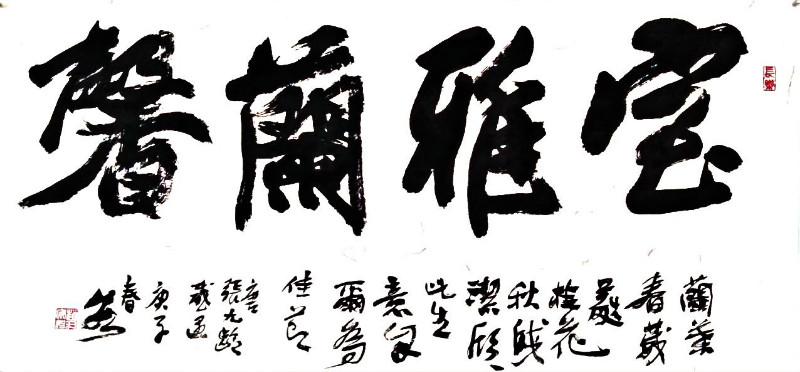 室雅蘭馨
蘭葉
春葳
蕤
桂花
秋皎
潔欣、
此生
意自
爾為
佳節
唐
張九齡
感遇
庚子
春